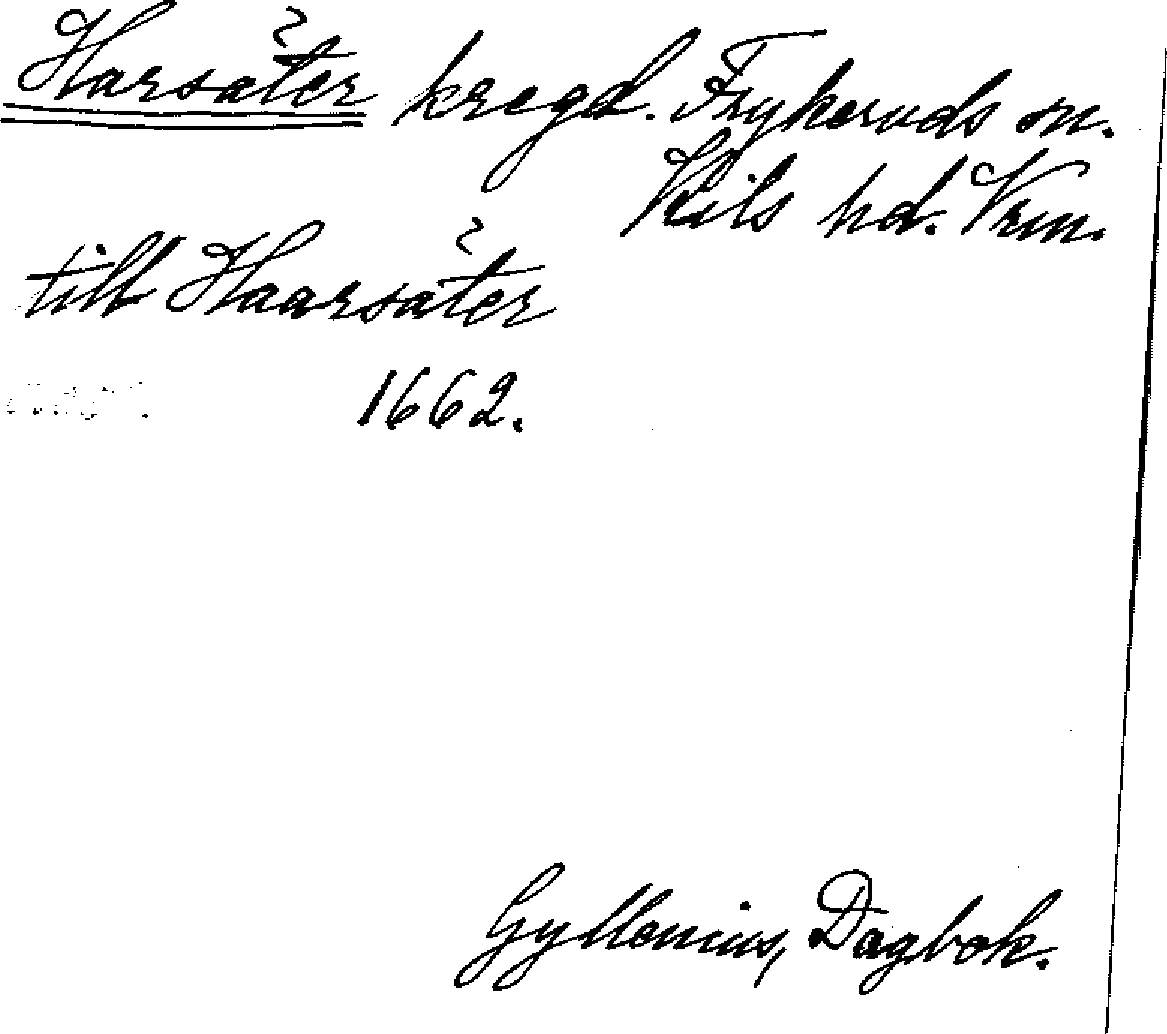 Harsäter kregd. Frykeruds sn.
Kils hd. Vrm.
till Haarsäter
1662.
Gyllenius, Dagbok.